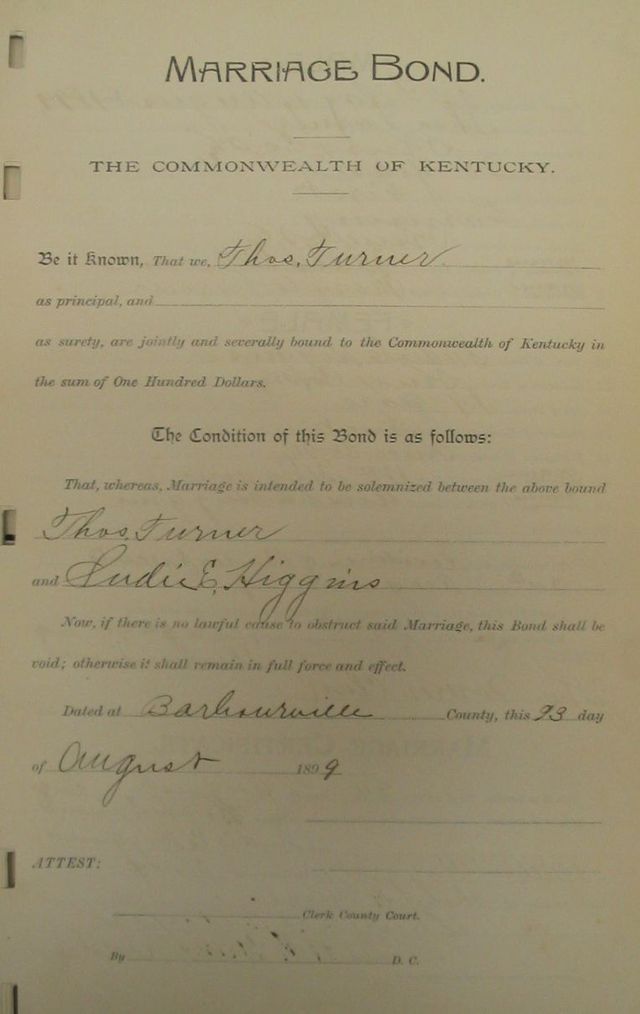 MARRIAGE BOND.
THE COMMONWEALTH OF KENTUCKY.
Be it Known, That we, Thos. Turner
as principal, and
as surety, are jointly and severally bound to the Commonwealth of Kentucky in
the sum of One Hundred Dollars.
The Condition of this Bond is as follows:
That, whereas, Marriage is intended to be solemnized between the above bound
Thos. Turner
and Ludie E. Higgins
Now, if there is no lawful cause to obstruct said Marriage, this Bond shall be
void; otherwise it shall remain in full force and effect.
Dated at Barbourville County, this 23 day
of August 1899
ATTEST:
Clerk County Court.
By D. C.